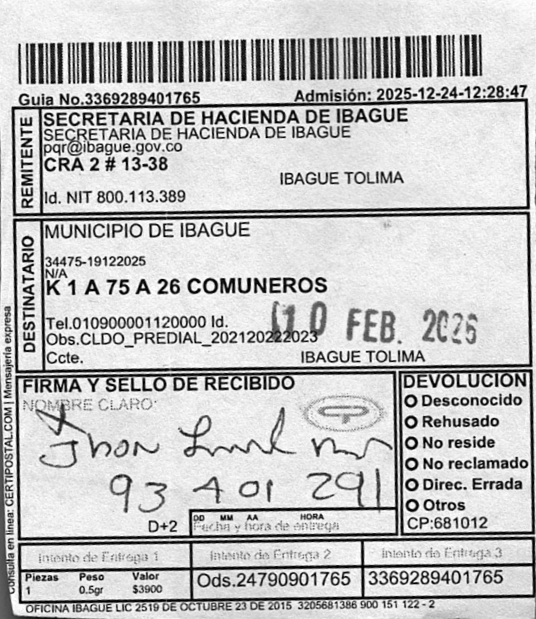 Guia No.3369289401765 Admisión: 2025-12-24-12:28:47
REMITENTE
SECRETARIA DE HACIENDA DE IBAGUE
SECRETARIA DE HACIENDA DE IBAGUE
pqr@ibague.gov.co
CRA 2 # 13-38
IBAGUE TOLIMA
Id. NIT 800.113.389
DESTINATARIO
MUNICIPIO DE IBAGUE
34475-19122025
N/A
K 1 A 75 A 26 COMUNEROS
10 FEB. 2026
Tel.010900001120000 Id.
Obs.CLDO_PREDIAL_202120222023
Ccte. IBAGUE TOLIMA
Consulta en linea: CERTIPOSTAL.COM | Mensajería expresa
FIRMA Y SELLO DE RECIBIDO
NOMBRE CLARO:
Jhon
93 401 291
D+2
DD MM AA HORA
Fecha y hora de entrega
DEVOLUCION
Desconocido
Rehusado
No reside
No reclamado
Direc. Errada
Otros
CP:681012
Intento de Entrega 1 Intento de Entrega 2 Intento de Entrega 3
Piezas Peso Valor
1 0.5gr $3900
Ods.24790901765 3369289401765
OFICINA IBAGUE LIC 2519 DE OCTUBRE 23 DE 2015 3205681386 900 151 122 - 2